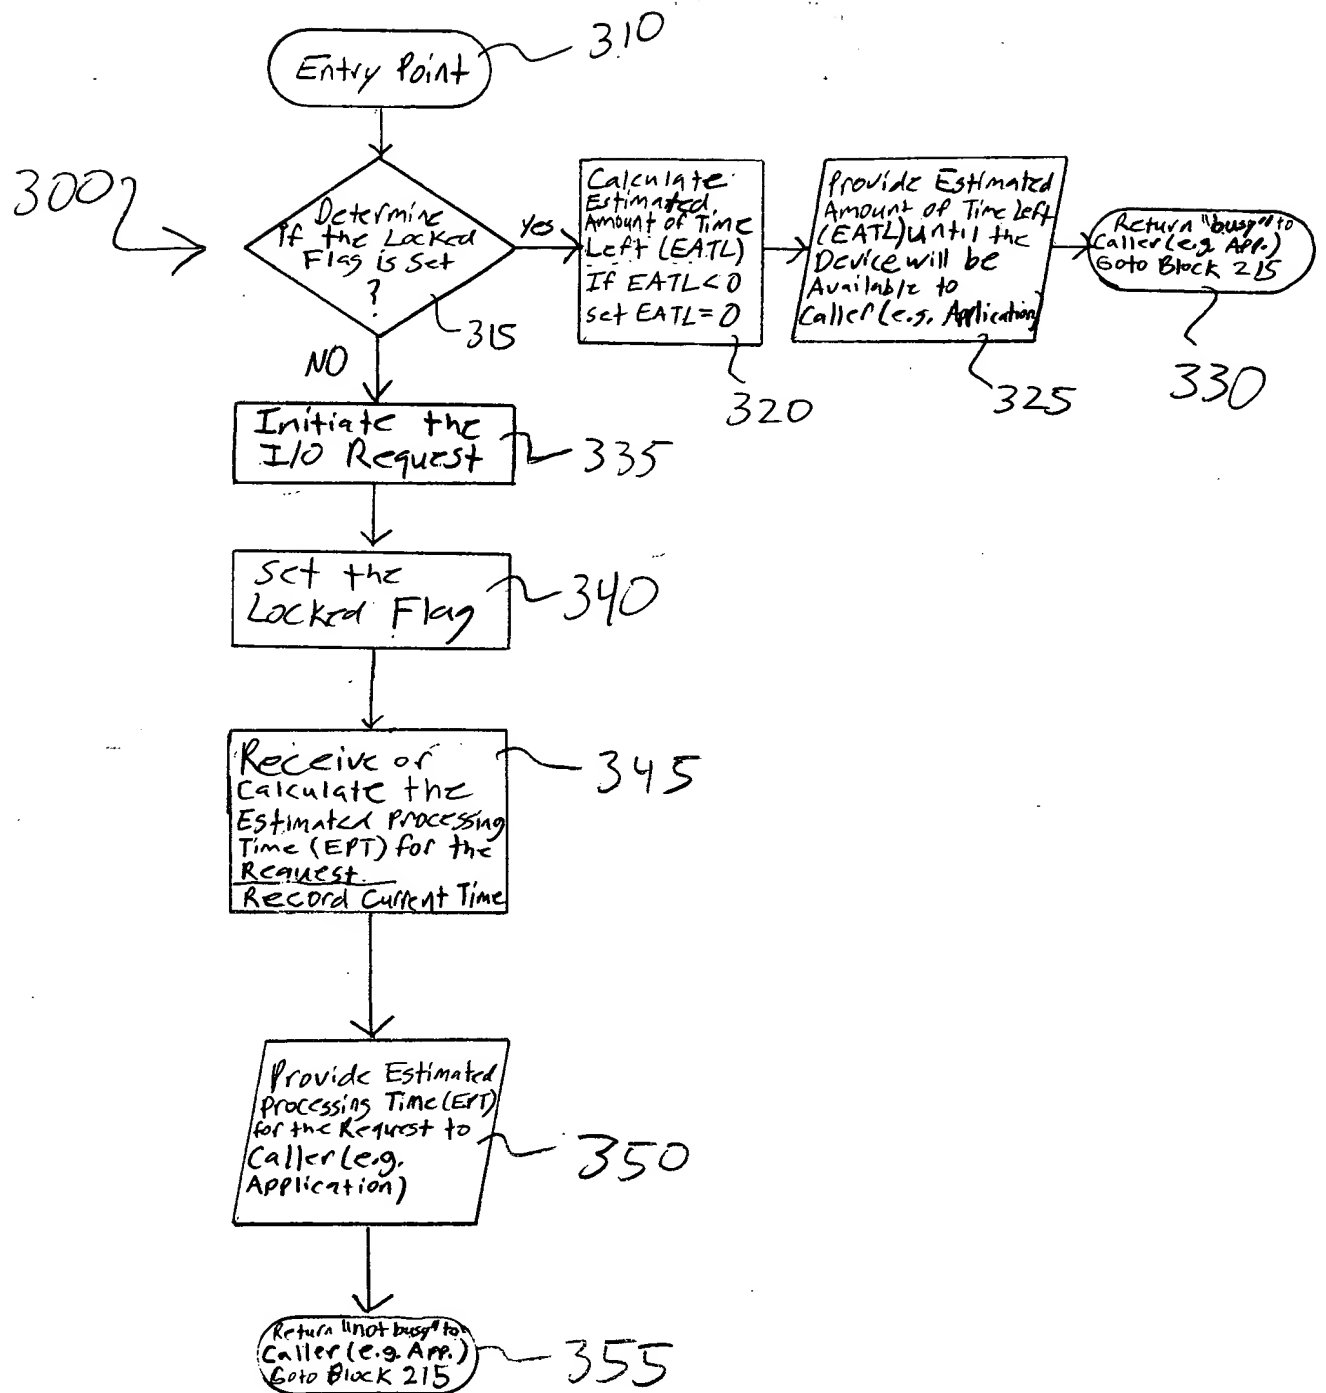 310
Entry Point
300
Determine
if the Locked
Flag is Set
?
315
Yes
Calculate
Estimated
Amount of Time
Left (EATL)
If EATL < 0
set EATL = 0
320
Provide Estimated
Amount of Time Left
(EATL) Until the
Device will be
Available to
Caller (e.g. Application)
325
Return "busy" to
Caller (e.g. App.)
Goto Block 215
330
NO
Initiate the
I/O Request
335
Set the
Locked Flag
340
Receive or
Calculate the
Estimated Processing
Time (EPT) for the
Request
Record Current Time
345
Provide Estimated
Processing Time (EPT)
for the Request to
Caller (e.g.
Application)
350
Return "not busy" to
Caller (e.g. App.)
Goto Block 215
355